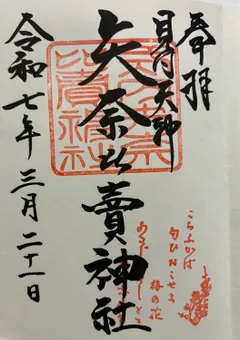 奉拝
見付天神
矢奈比賣神社
令和七年三月二十一日
こちふかば
匂ひおこせよ
梅の花